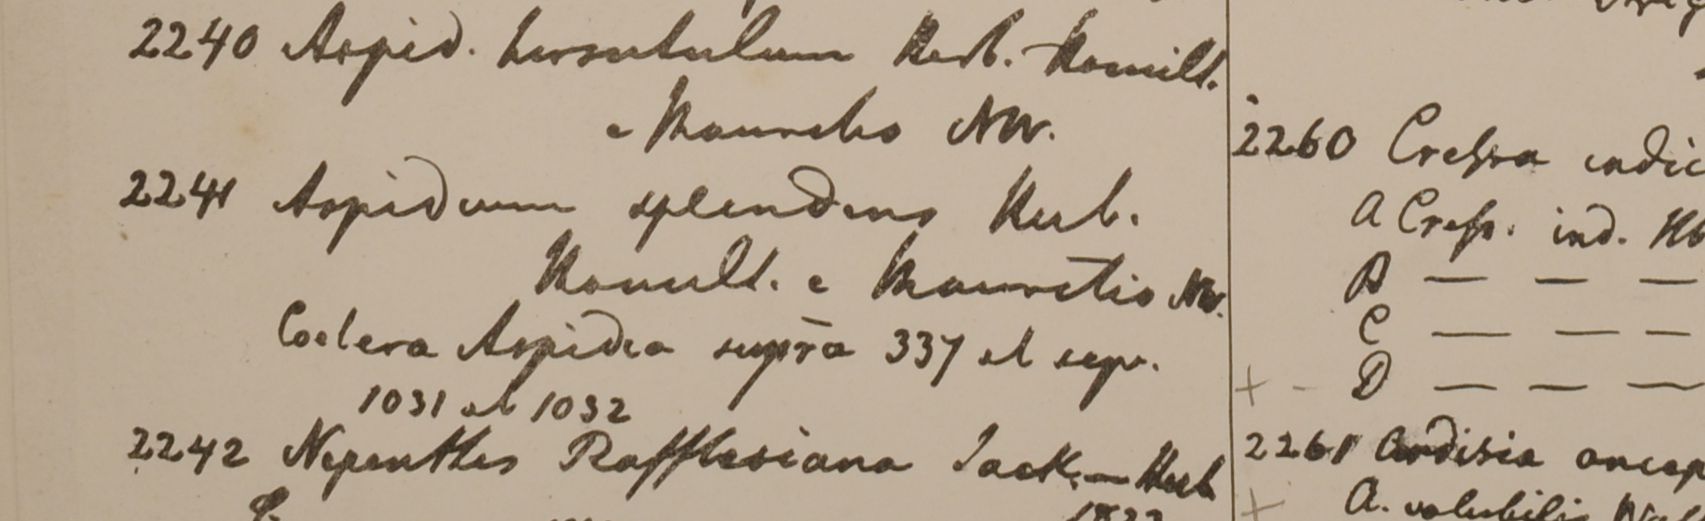 2240 Aspid. hirsutulum Herb. Hamilt.
e Mauritio NW.
2241 Aspidium splendens Herb.
Hamilt. e Mauritio NW.
Coetera Aspidia supra 337 et seqv.
1031 et 1032
2242 Nepenthes Rafflesiana Jack. — Herb
2260 Cressa indic
A Cress. ind. Hb
B — — —
C — — —
+ - D — — —
2261 Ardisia ancep
+ A. volubilis Wal